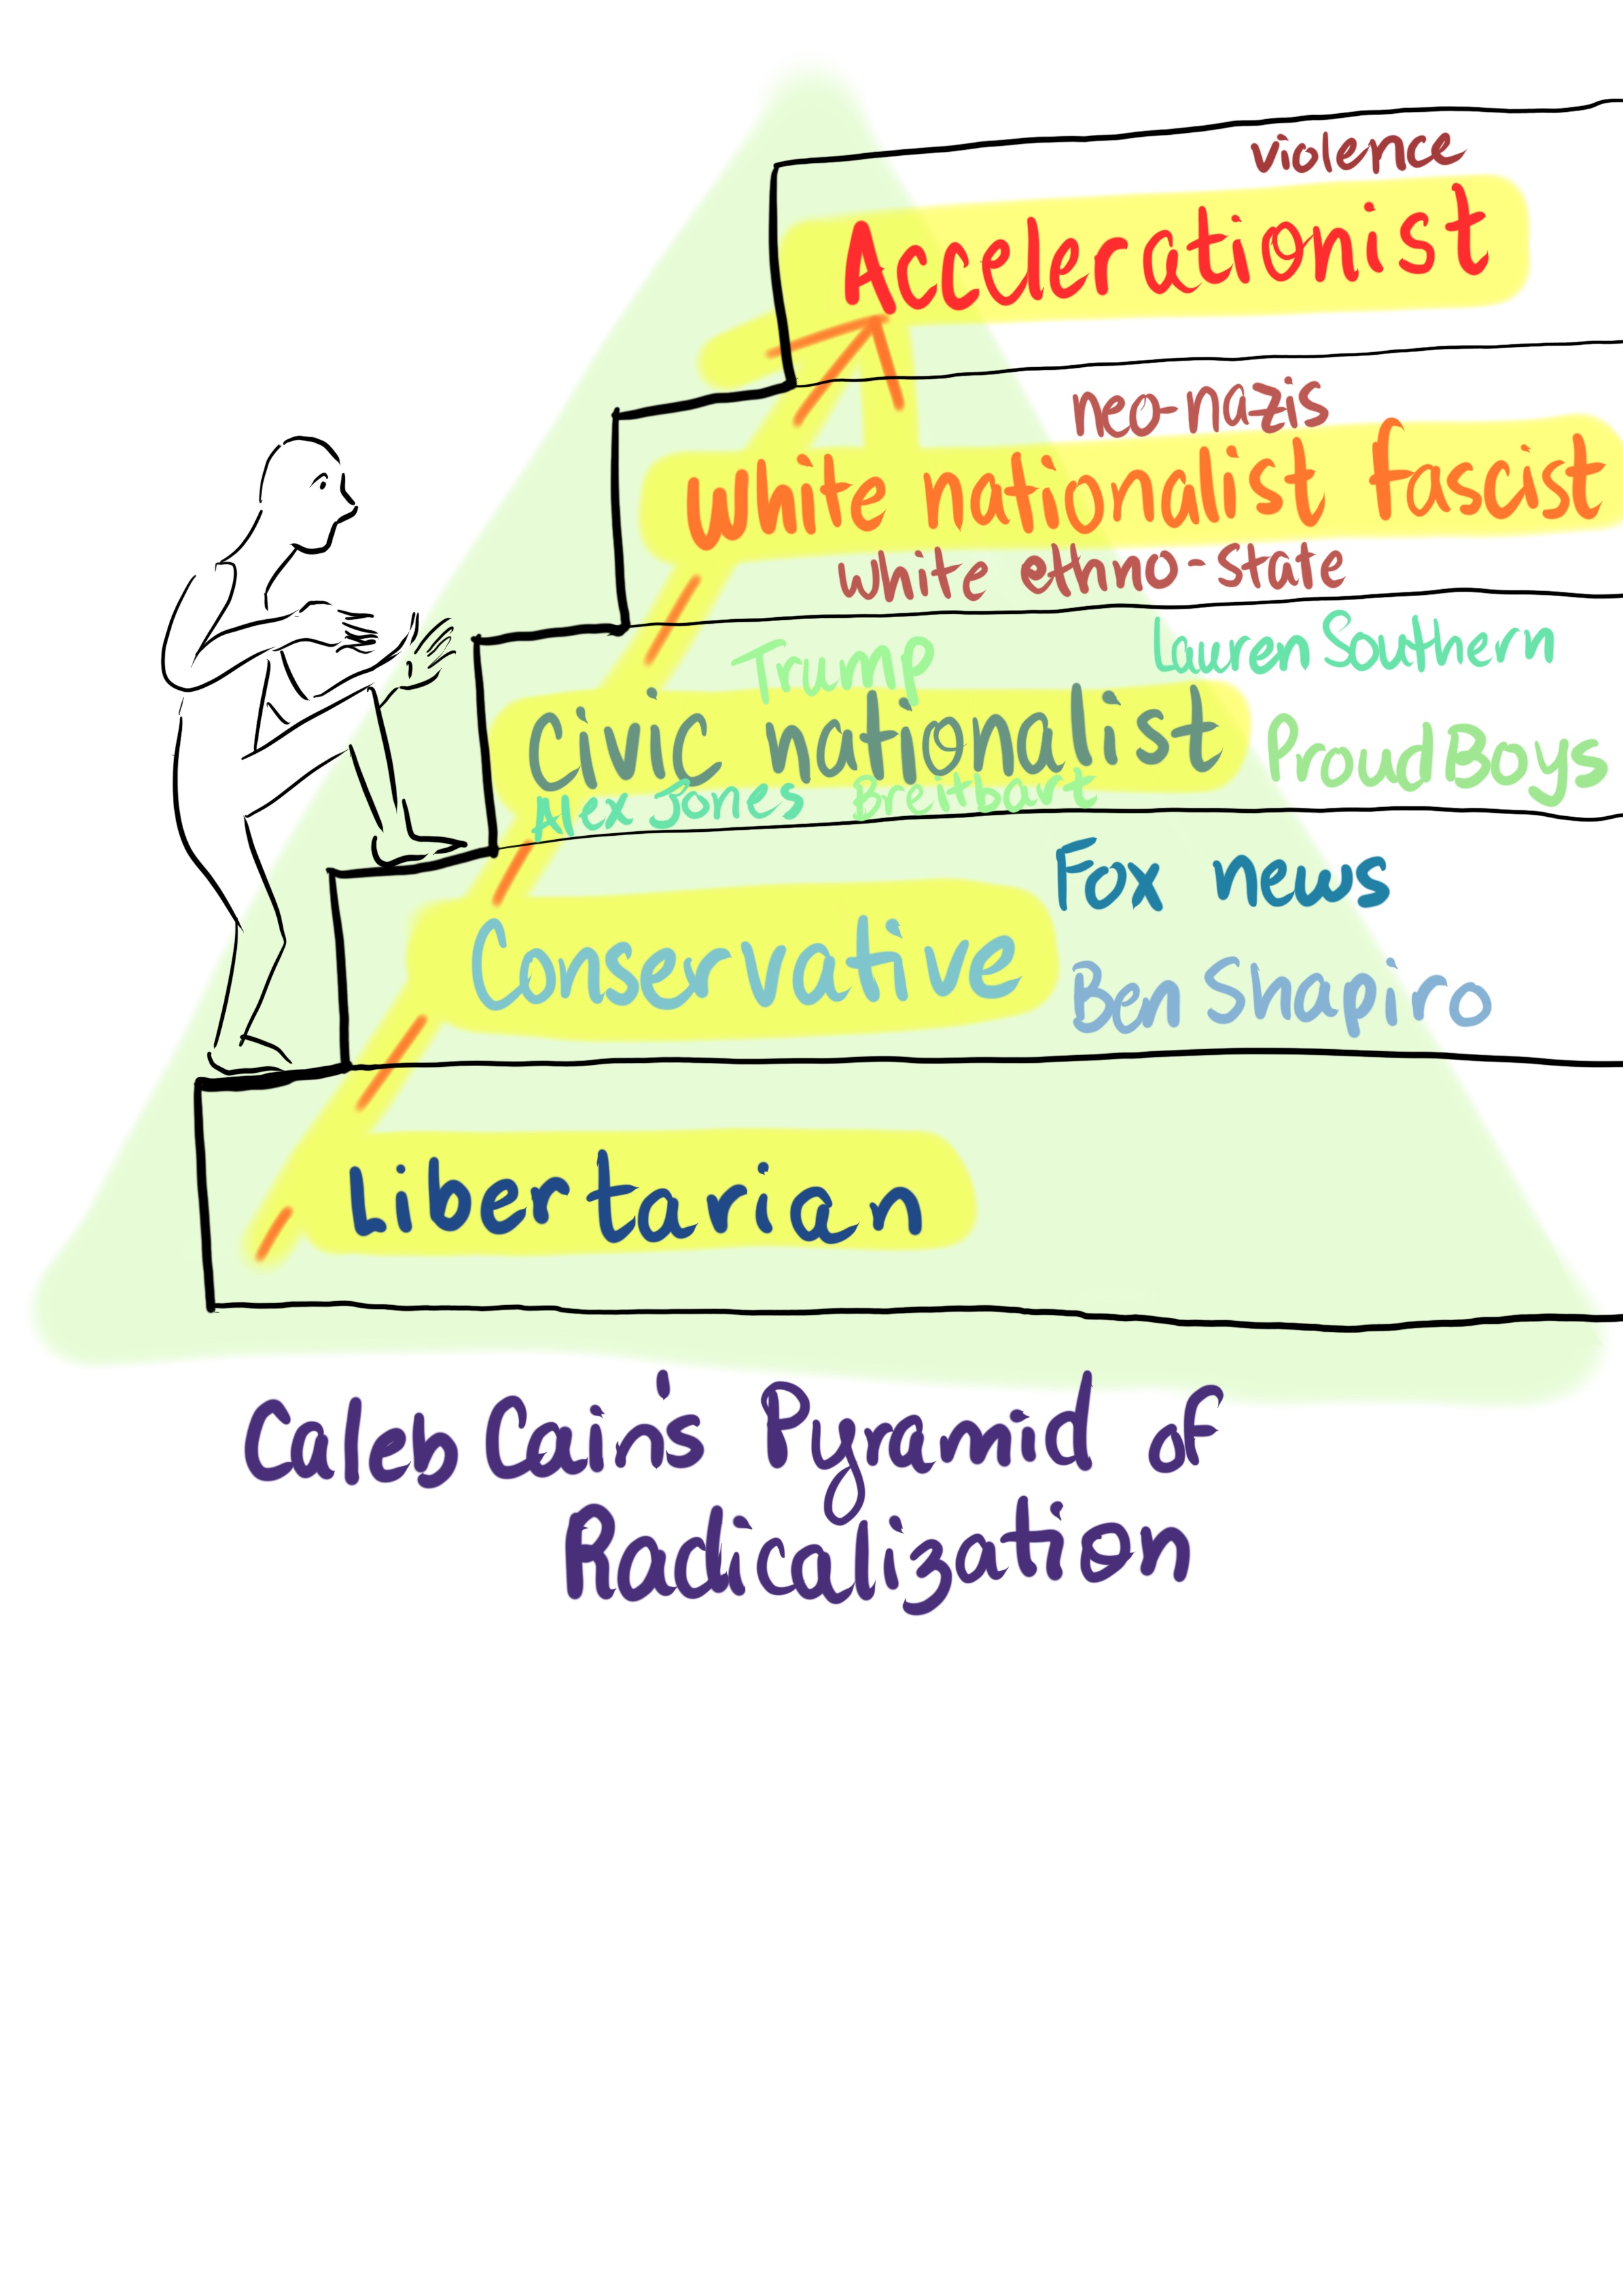 violence
Accelerationist
neo-nazis
White nationalist fascist
white ethno-state
Trump
Lauren Southern
Civic nationalist
ProudBoys
Alex Jones Breitbart
Fox news
Conservative
Ben Shapiro
Libertarian
Caleb Cain's Pyramid of
Radicalization